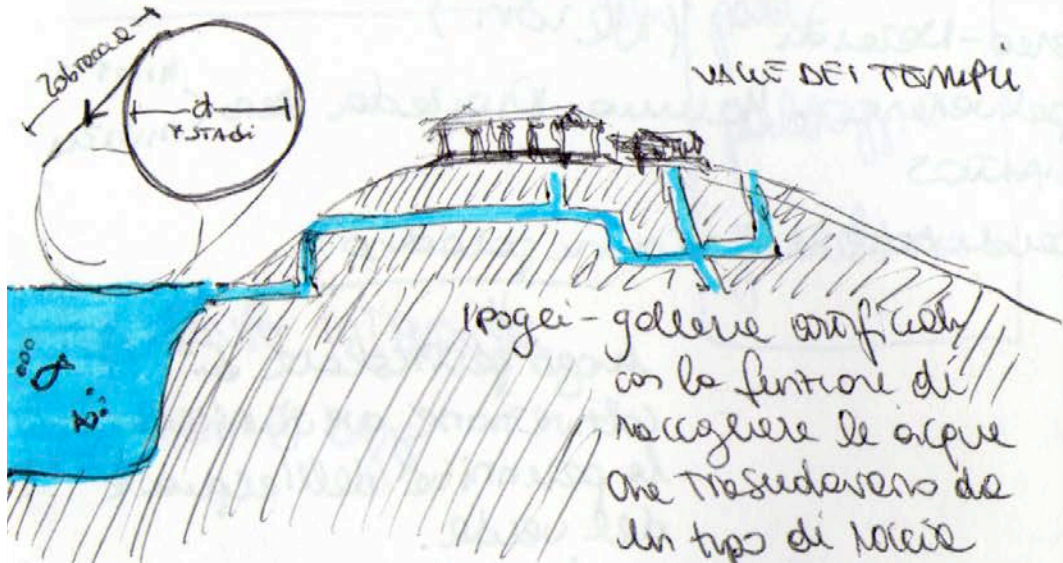 20 braccia
d
7 STADI
VALLE DEI TEMPLI
Ipogei - gallerie artificiali
con la funzione di
raccogliere le acque
che trasudavano da
un tipo di roccia